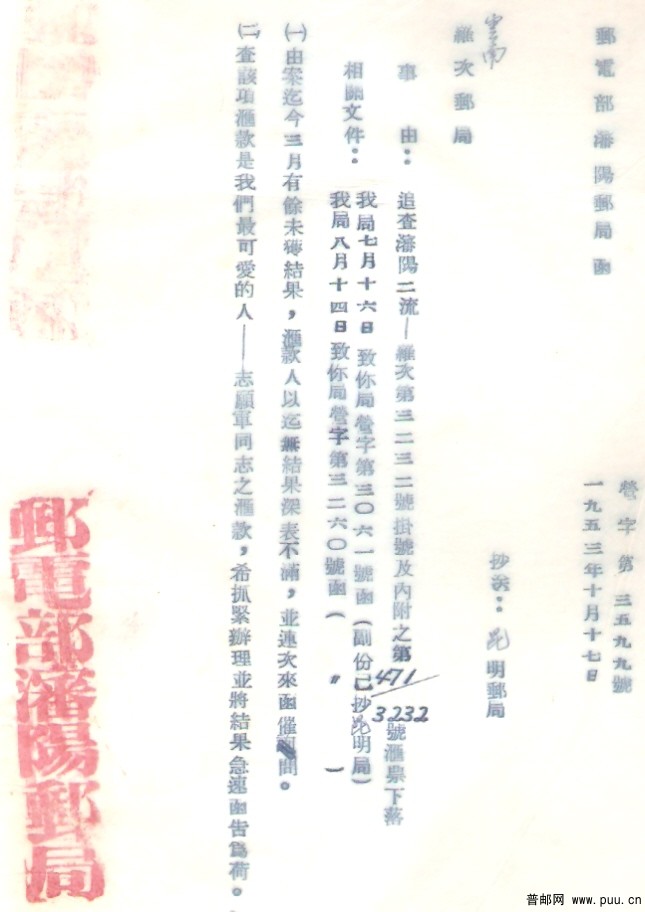 郵電部瀋陽郵局函
營字第三五九九號
一九五三年十月十七日
抄送：昆明郵局
雲南
羅次郵局
事由：追查瀋陽二流—羅次第三二三二號掛號及內附之第471/3232號滙票下落
相關文件：我局七月十六日致你局營字第三〇六一號函（副份已抄昆明局）
我局八月十四日致你局營字第三二六〇號函（〃）
㈠由案迄今三月有餘未獲結果，滙款人以迄無結果深表不滿，並連次來函催問。
㈡查該項滙款是我們最可愛的人——志願軍同志之滙款，希抓緊辦理並將結果急速函告為荷。
郵電部瀋陽郵局
普邮网 www.puu.cn